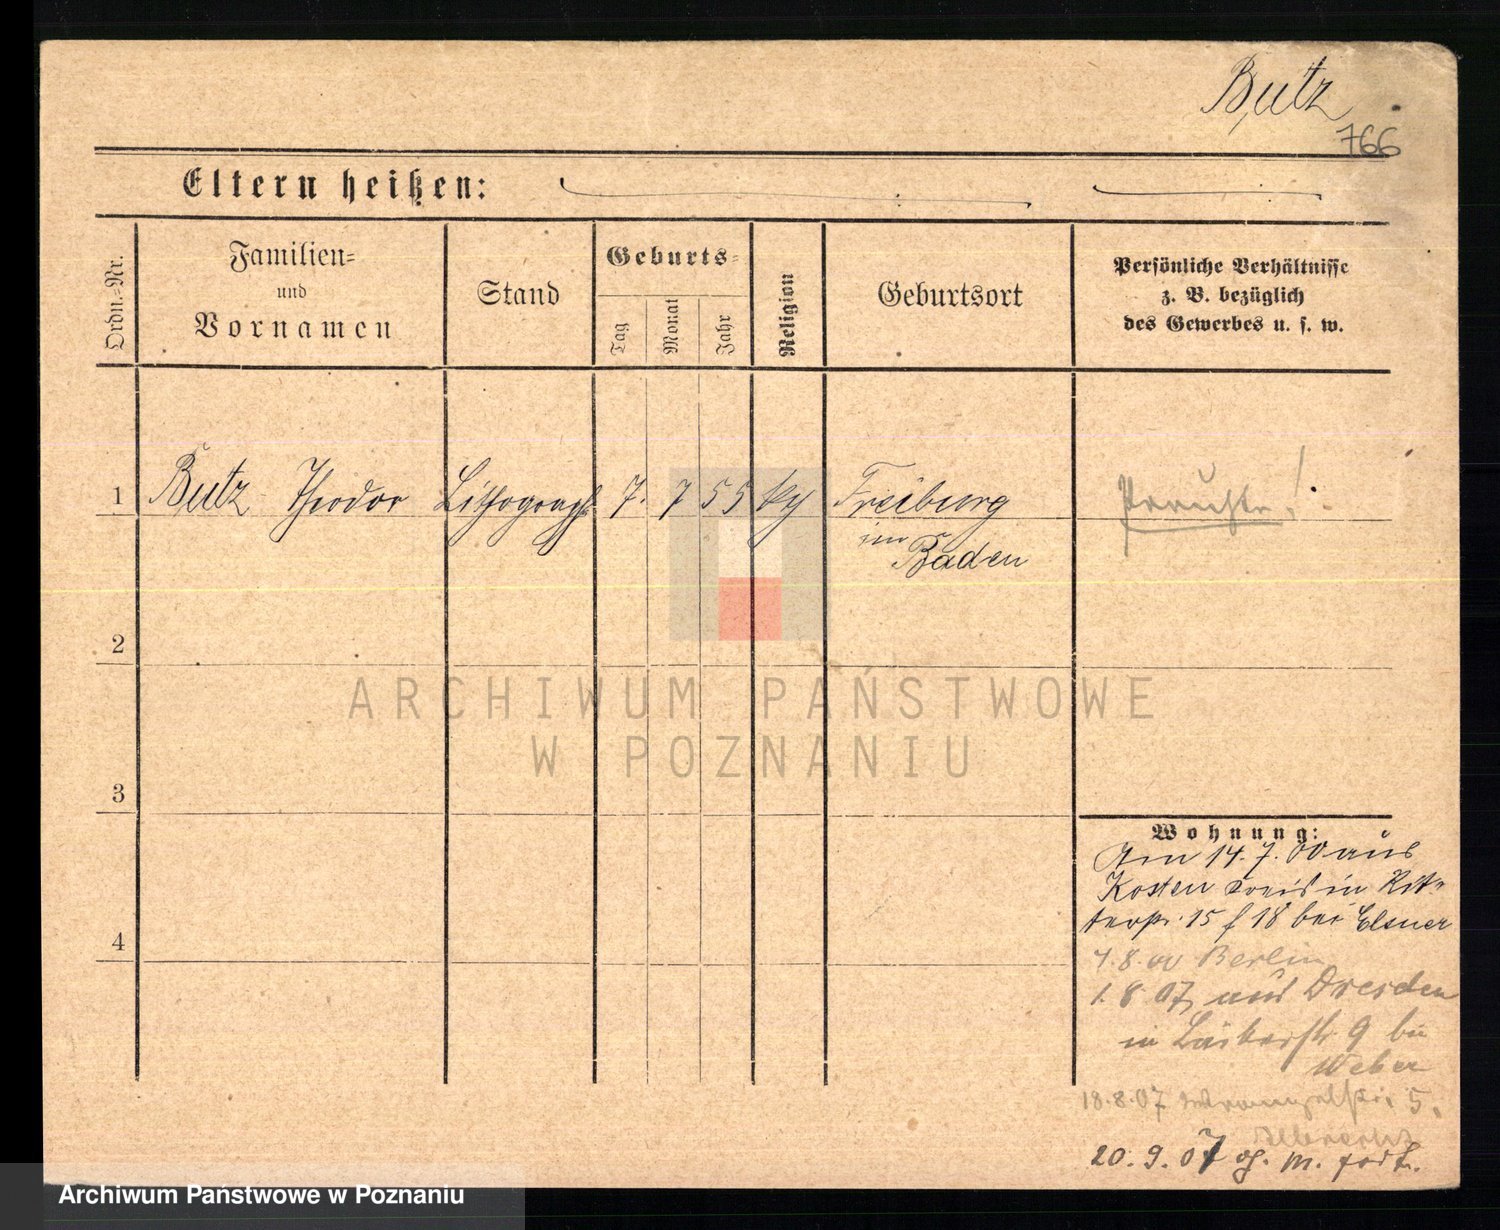 Butz
766
Eltern heißen:
Ordn.=Nr.
Familien=
und
Vornamen
Stand
Geburts=
Tag
Monat
Jahr
Religion
Geburtsort
Persönliche Verhältnisse
z. B. bezüglich
des Gewerbes u. s. w.
1 Butz Theodor Lithograph 7. 7 55 Freiburg
im
Baden
2
ARCHIWUM PAŃSTWOWE
W POZNANIU
3
Wohnung:
Am 14. 7. 00 aus
Kosten in Rit=
terstr. 15 f 18 bei Elsner
4
4.8.00 Berlin
1. 8 07, aus Dresden
in 9 bei
Weber
18.8.07 Wrangelstr. 5.
20. 9. 07 fort.
Archiwum Państwowe w Poznaniu